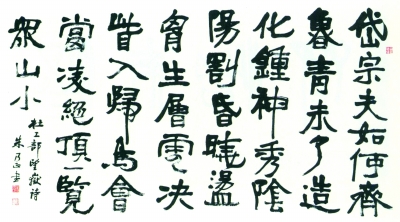 岱宗夫如何齊
魯青未了造
化鍾神秀陰
陽割昏曉盪
胷生層雲決
眥入歸鳥會
當凌絕頂一覽
眾山小
杜工部望嶽詩
朱乃正書